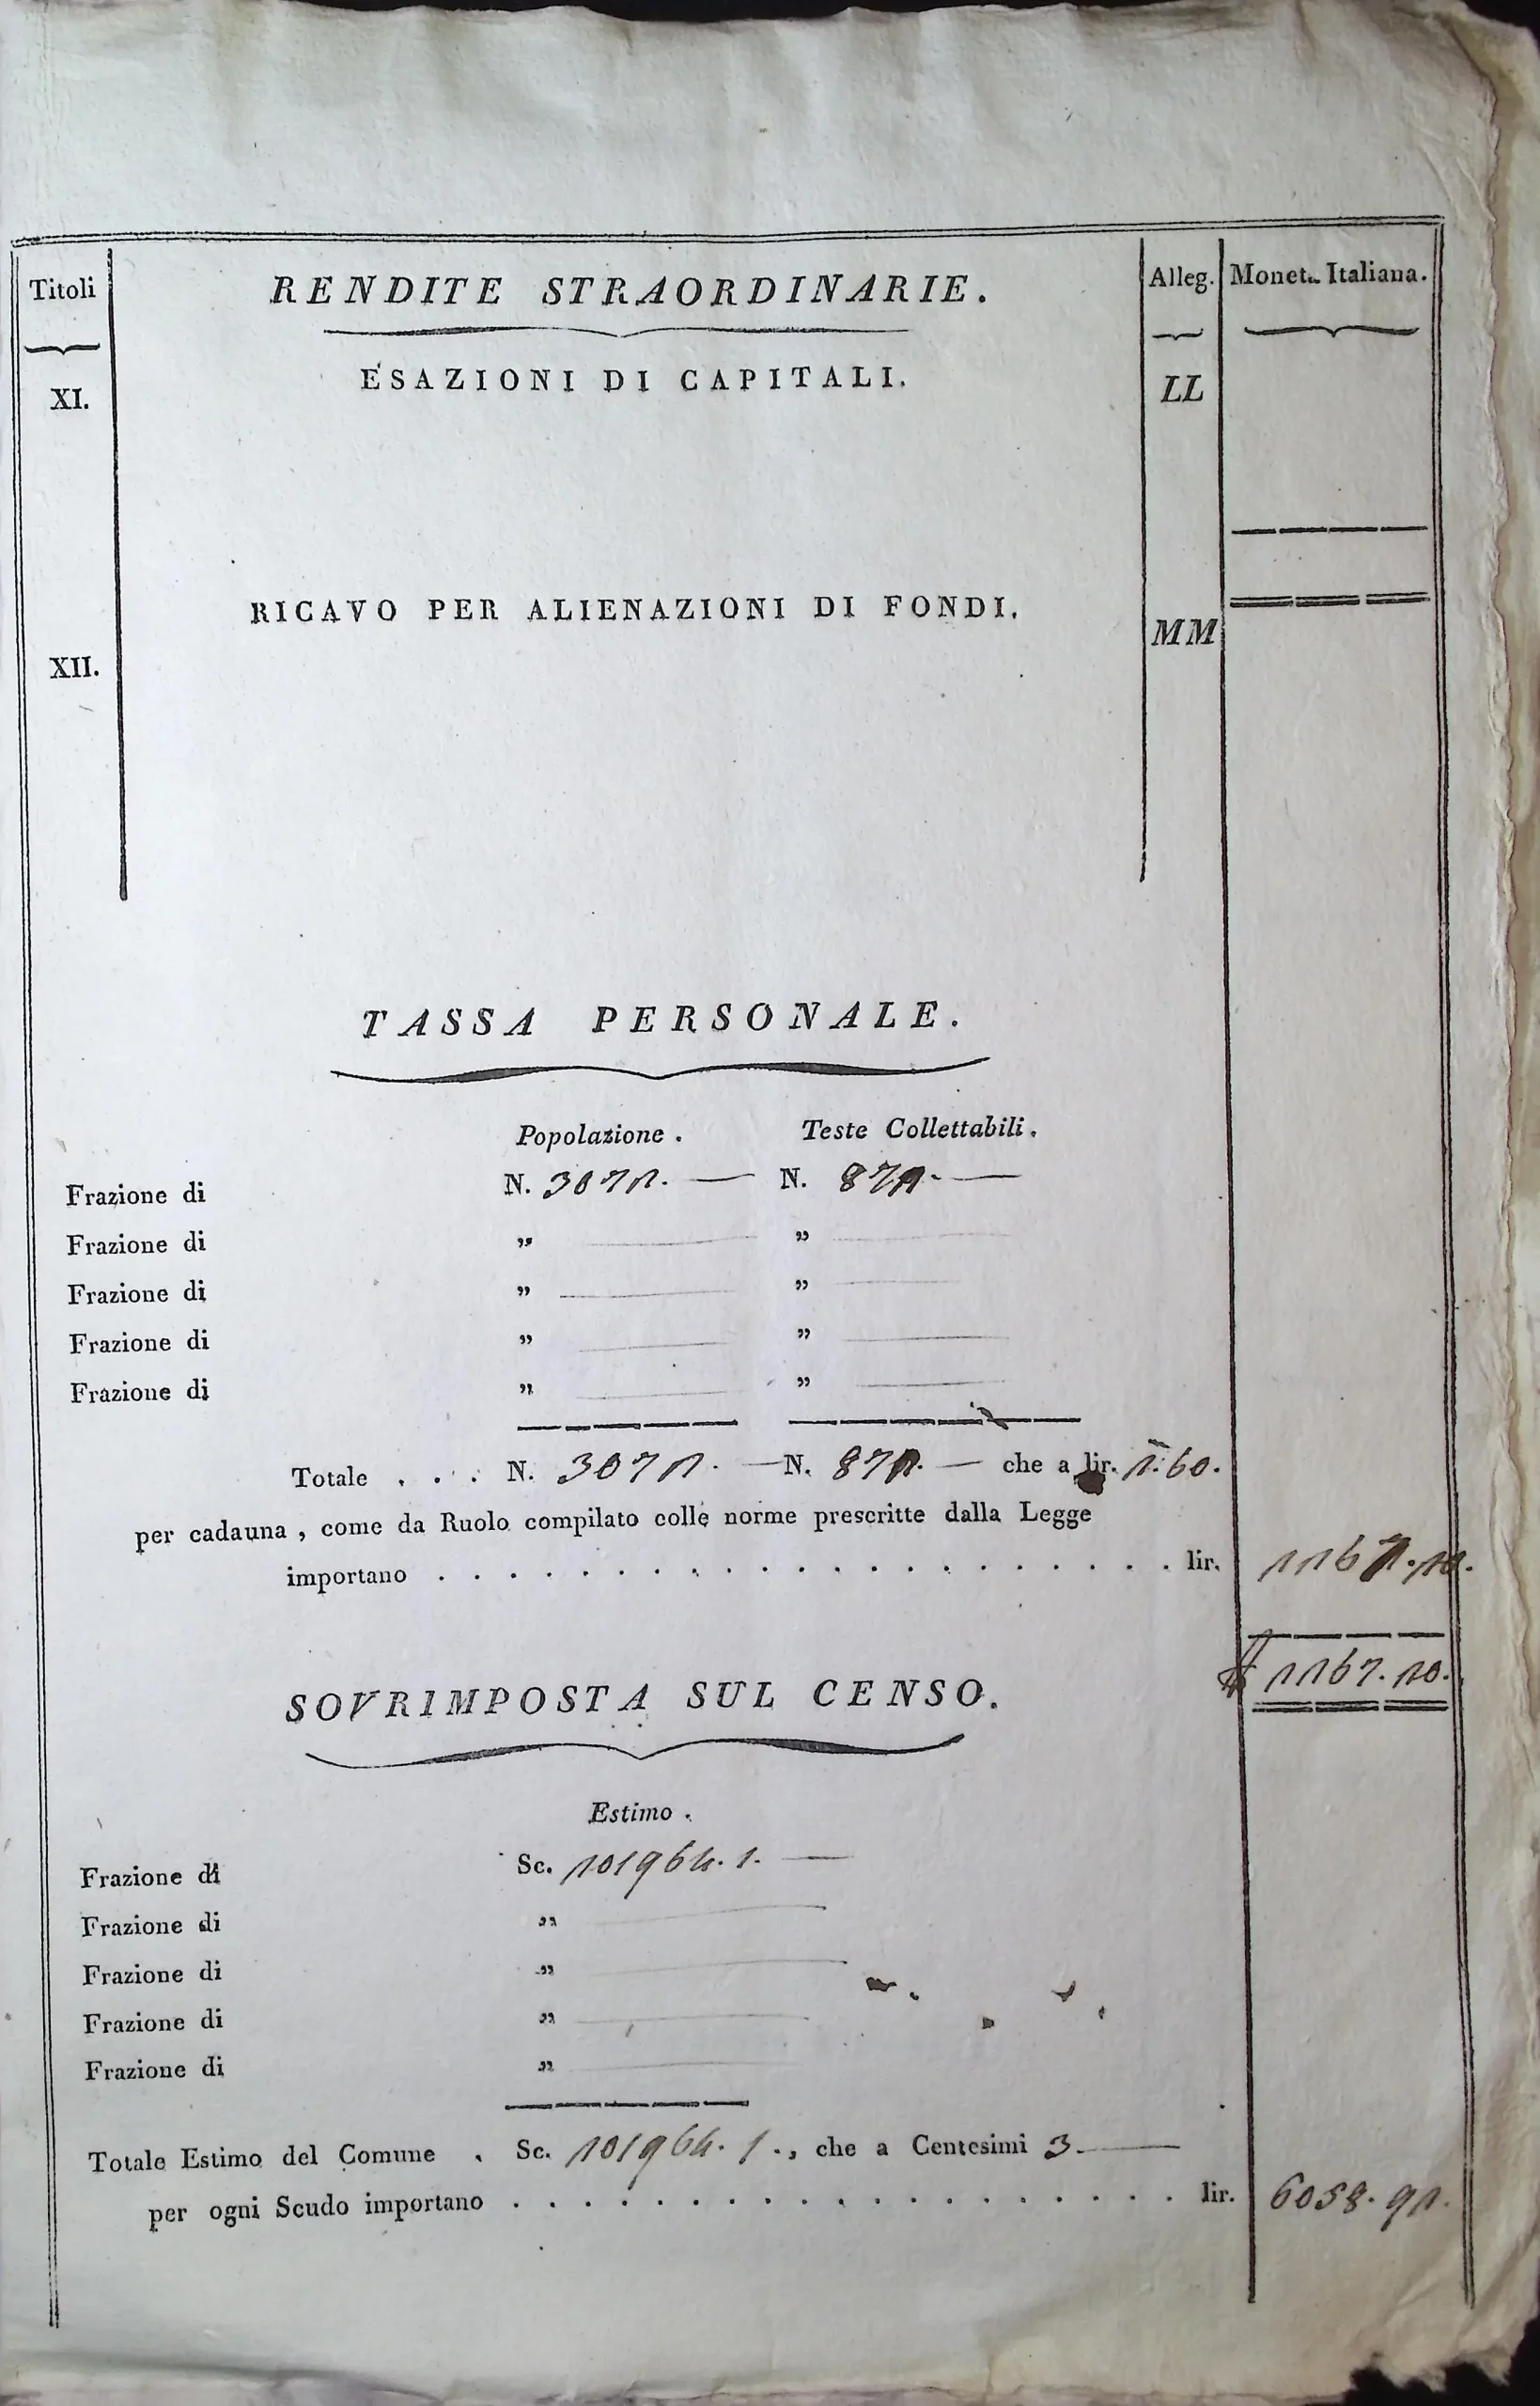 Titoli RENDITE STRAORDINARIE. Alleg. Monet. Italiana.
XI. ESAZIONI DI CAPITALI. LL
RICAVO PER ALIENAZIONI DI FONDI. MM
XII.
TASSA PERSONALE.
Popolazione. Teste Collettabili.
Frazione di N. 3071. — N. 871. —
Frazione di „ „
Frazione di „ „
Frazione di „ „
Frazione di „ „
Totale . . . N. 3071. — N. 871. — che a lir. 1:60.
per cadauna, come da Ruolo compilato colle norme prescritte dalla Legge
importano . . . . . . . . . . . . . . . . . . . . . lir. 1167.10.
1167.10.
SOVRIMPOSTA SUL CENSO.
Estimo.
Frazione di Sc. 101964.1. —
Frazione di „
Frazione di „
Frazione di „
Frazione di „
Totale Estimo del Comune . Sc. 101964.1., che a Centesimi 3. —
per ogni Scudo importano . . . . . . . . . . . . . . . . . . . lir. 6058.91.